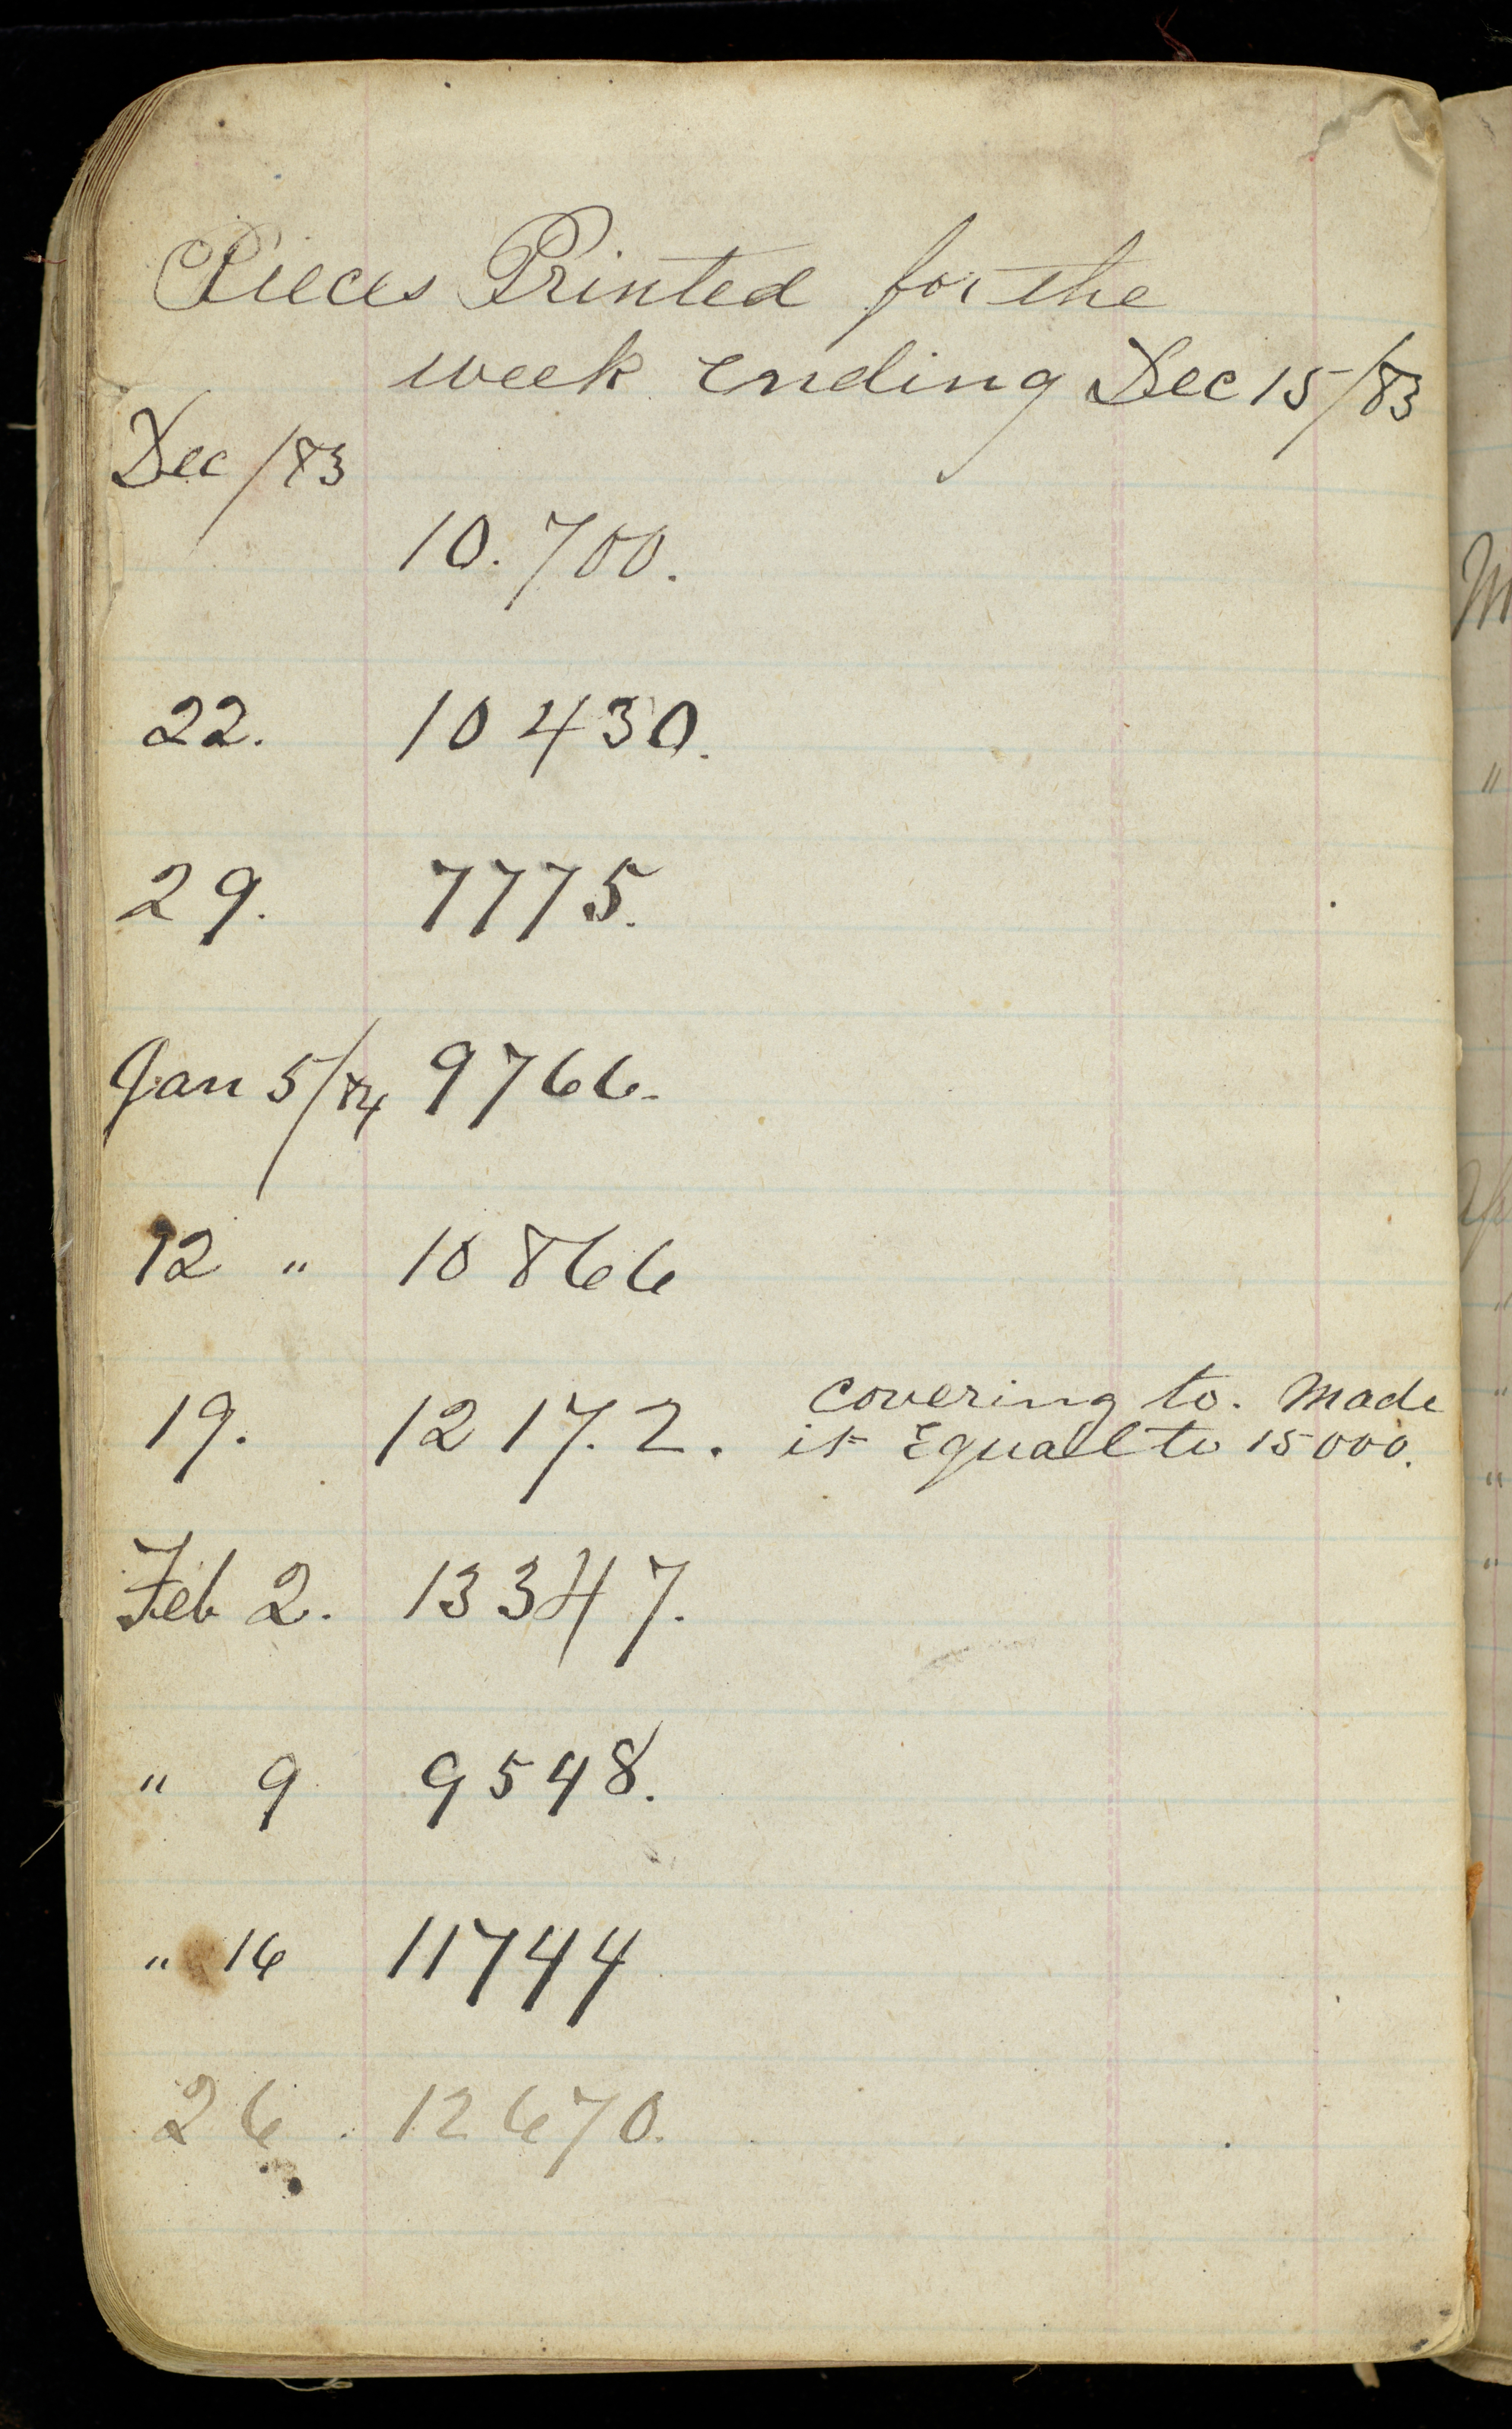 Pieces Printed for the
week ending Dec 15/83
Dec /83
10.700.
22. 10430.
29. 7775.
Jan 5/84 9766.
12 " 10866
19. 1217.2. covering to. Made
it Equal to 15000.
Feb 2. 13347.
" 9 9548.
" 16 11744
26. 12670.